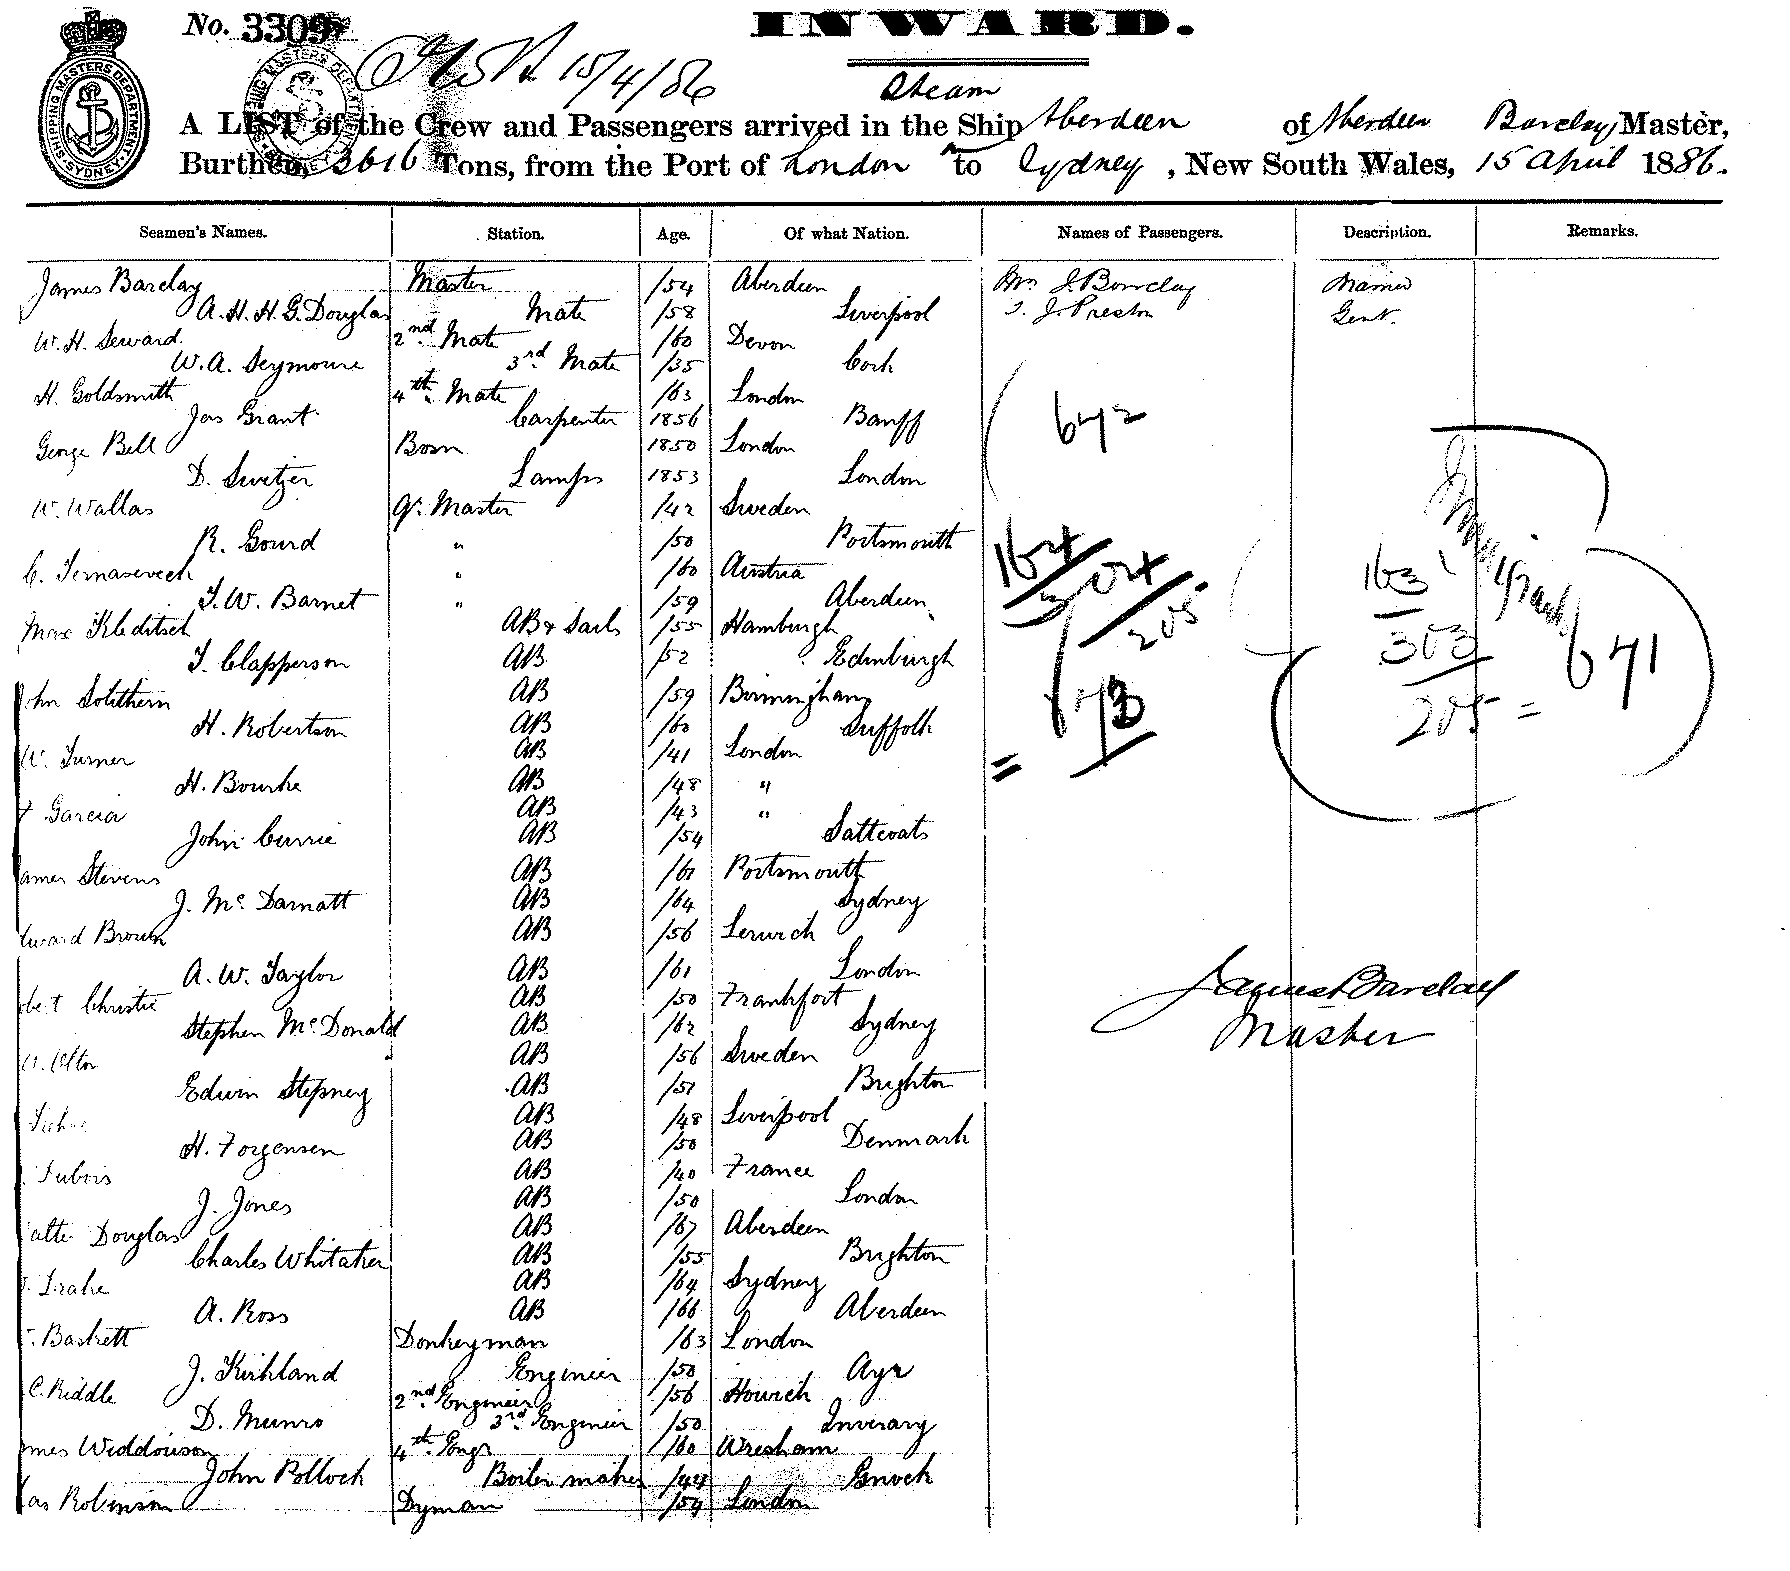 No. 3309
INWARD.
15/4/86
Steam
A LIST of the Crew and Passengers arrived in the Ship Aberdeen of Aberdeen Barclay, Master,
Burthen, 3616 Tons, from the Port of London to Sydney, New South Wales, 15 April 1886.
SHIPPING MASTERS DEPARTMENT SYDNEY
Seamen's Names. Station. Age. Of what Nation. Names of Passengers. Description. Remarks.
James Barclay Master /54 Aberdeen Mrs J. Barclay Married
A. H. H. G. Douglas Mate /58 Liverpool J. Preston Gent.
W. H. Seward 2nd Mate /60 Devon
W. A. Seymour 3rd Mate /35 Cork
H. Goldsmith 4th Mate /63 London
Jas Grant Carpenter 1856 Banff
George Bell Bosn 1850 London
D. Switzer Lamps 1853 London
W. Wallas Qr. Master /42 Sweden
R. Gourd " /50 Portsmouth
C. " /60 Austria
J. W. Barnet " /59 Aberdeen
Max Kleditsch AB & Sails /55 Hamburgh
T. Clapperson AB /52 Edinburgh
ohn Solthern AB /59 Birmingham
H. Robertson AB /60 Suffolk
W. Turner AB /41 London
H. Bourke AB /48 "
Garcia AB /43 "
John Currie AB /54 Saltcoats
ames Stevens AB /61 Portsmouth
J. Mc Darnatt AB /64 Sydney
dward Brown AB /56 Lerwich
A. W. Taylor AB /61 London
Christie AB /50 Frankfort
Stephen McDonald AB /62 Sydney
AB /56 Sweden
Edwin Stepney AB /51 Brighton
AB /48 Liverpool
H. Forgensen AB /50 Denmark
Dubois AB /40 France
J. Jones AB /50 London
alter Douglas AB /67 Aberdeen
Charles Whitaker AB /55 Brighton
Drake AB /64 Sydney
A. Ross AB /66 Aberdeen
Baskett Donkeyman /63 London
J. Kirkland Engineer /50 Ayr
C. Riddle 2nd Engineer /56 Howich
D. Munro 3rd Engineer /50 Inverary
ames Widdowson 4th Engr /60 Wrexham
John Pollock Boiler maker /44 Gnock
as Robinson Dyman /54 London
642
164
304
205
673
163
303
205 =
671
James Barclay
Master